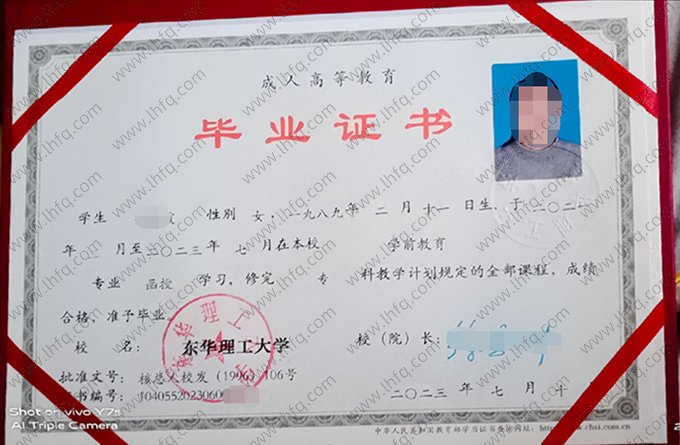 成人高等教育
毕业证书
学生 性别 女，一九八九年 二月十一日生，于二〇二
年 月至二〇二三年 七月在本校 学前教育
专业 函授 学习，修完 专 科教学计划规定的全部课程，成绩
合格，准予毕业。
校 名： 东华理工大学 校（院）长：
批准文号：核总人校发（1996）106号
书编号：1040552023060
二〇二三年 七月 十
Shot on vivo Y7s
AI Triple Camera
中华人民共和国教育部学历证书查询网址：http://www.chsi.com.cn
www.lhfq.com